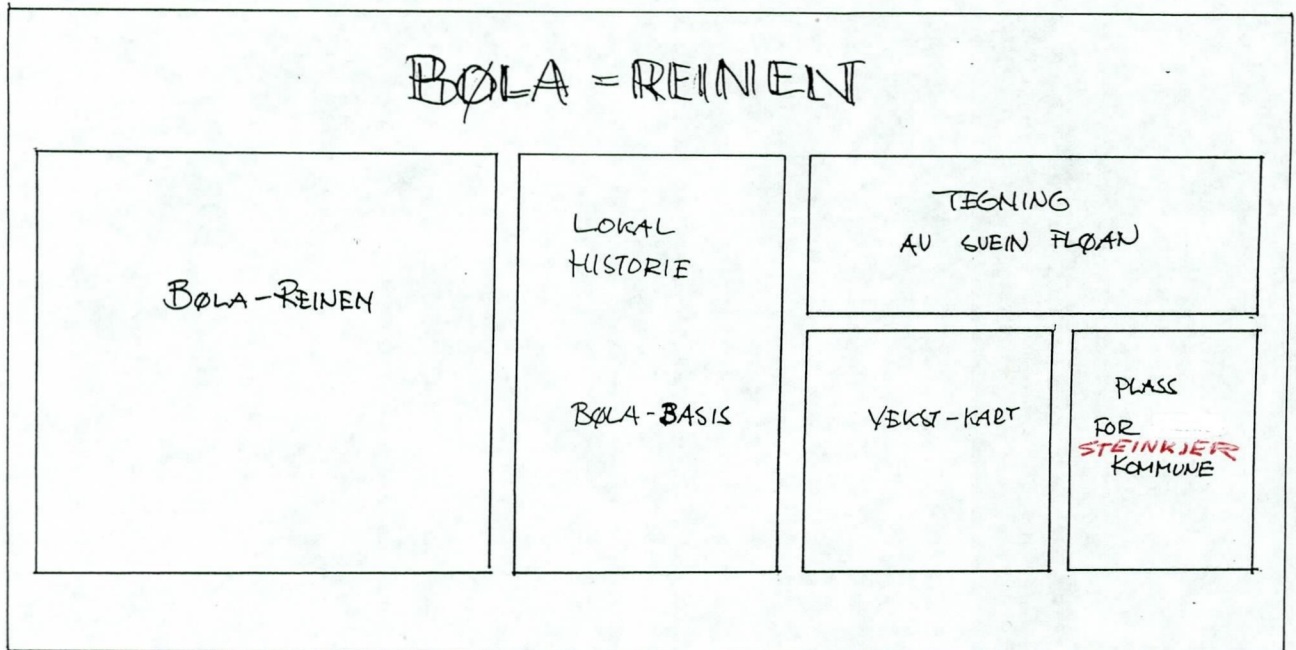 BØLA-REINEN
BØLA-REINEN
LOKAL
HISTORIE
BØLA-BASIS
TEGNING
AV SVEIN FLØAN
VEKST-KART
PLASS
FOR
STEINKJER
KOMMUNE